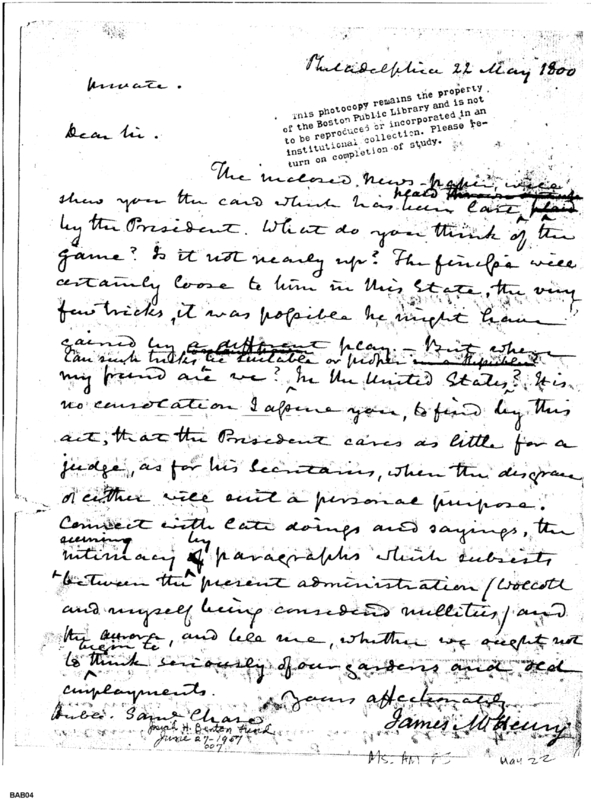 Philadelphia 22 May 1800
private.
This photocopy remains the property
of the Boston Public Library and is not
to be reproduced or incorporated in an
institutional collection. Please re-
turn on completion of study.
Dear Sir.
The inclosed News-paper, will
shew you the card which has been last plaid
by the President. What do you think of the
game? Is it not nearly up? The finesse will
certainly loose to him in this State, the very
few tricks, it was possible he might have
gained by a different play. — But where
Can such tricks be suitable or proper
my friend are we? In the United States? It is
no consolation I assure you, to find by this
act, that the President cares as little for a
judge, as for his Secretaries, when the disgrace
of either will suit a personal purpose.
Connect with late doings and sayings, the
seeming by
intimacy of paragraphs which subsists
between the present administration (Wolcott
and myself being considered nullities) and
the aurora, and tell me, whether we ought not
begin to
to think seriously of our gardens and old
employments.
Yours affectionately
James McHenry
Saml Chase
Josiah H. Benton Fund
June 27-1957
007
Ms. Am
May 22
BAB04